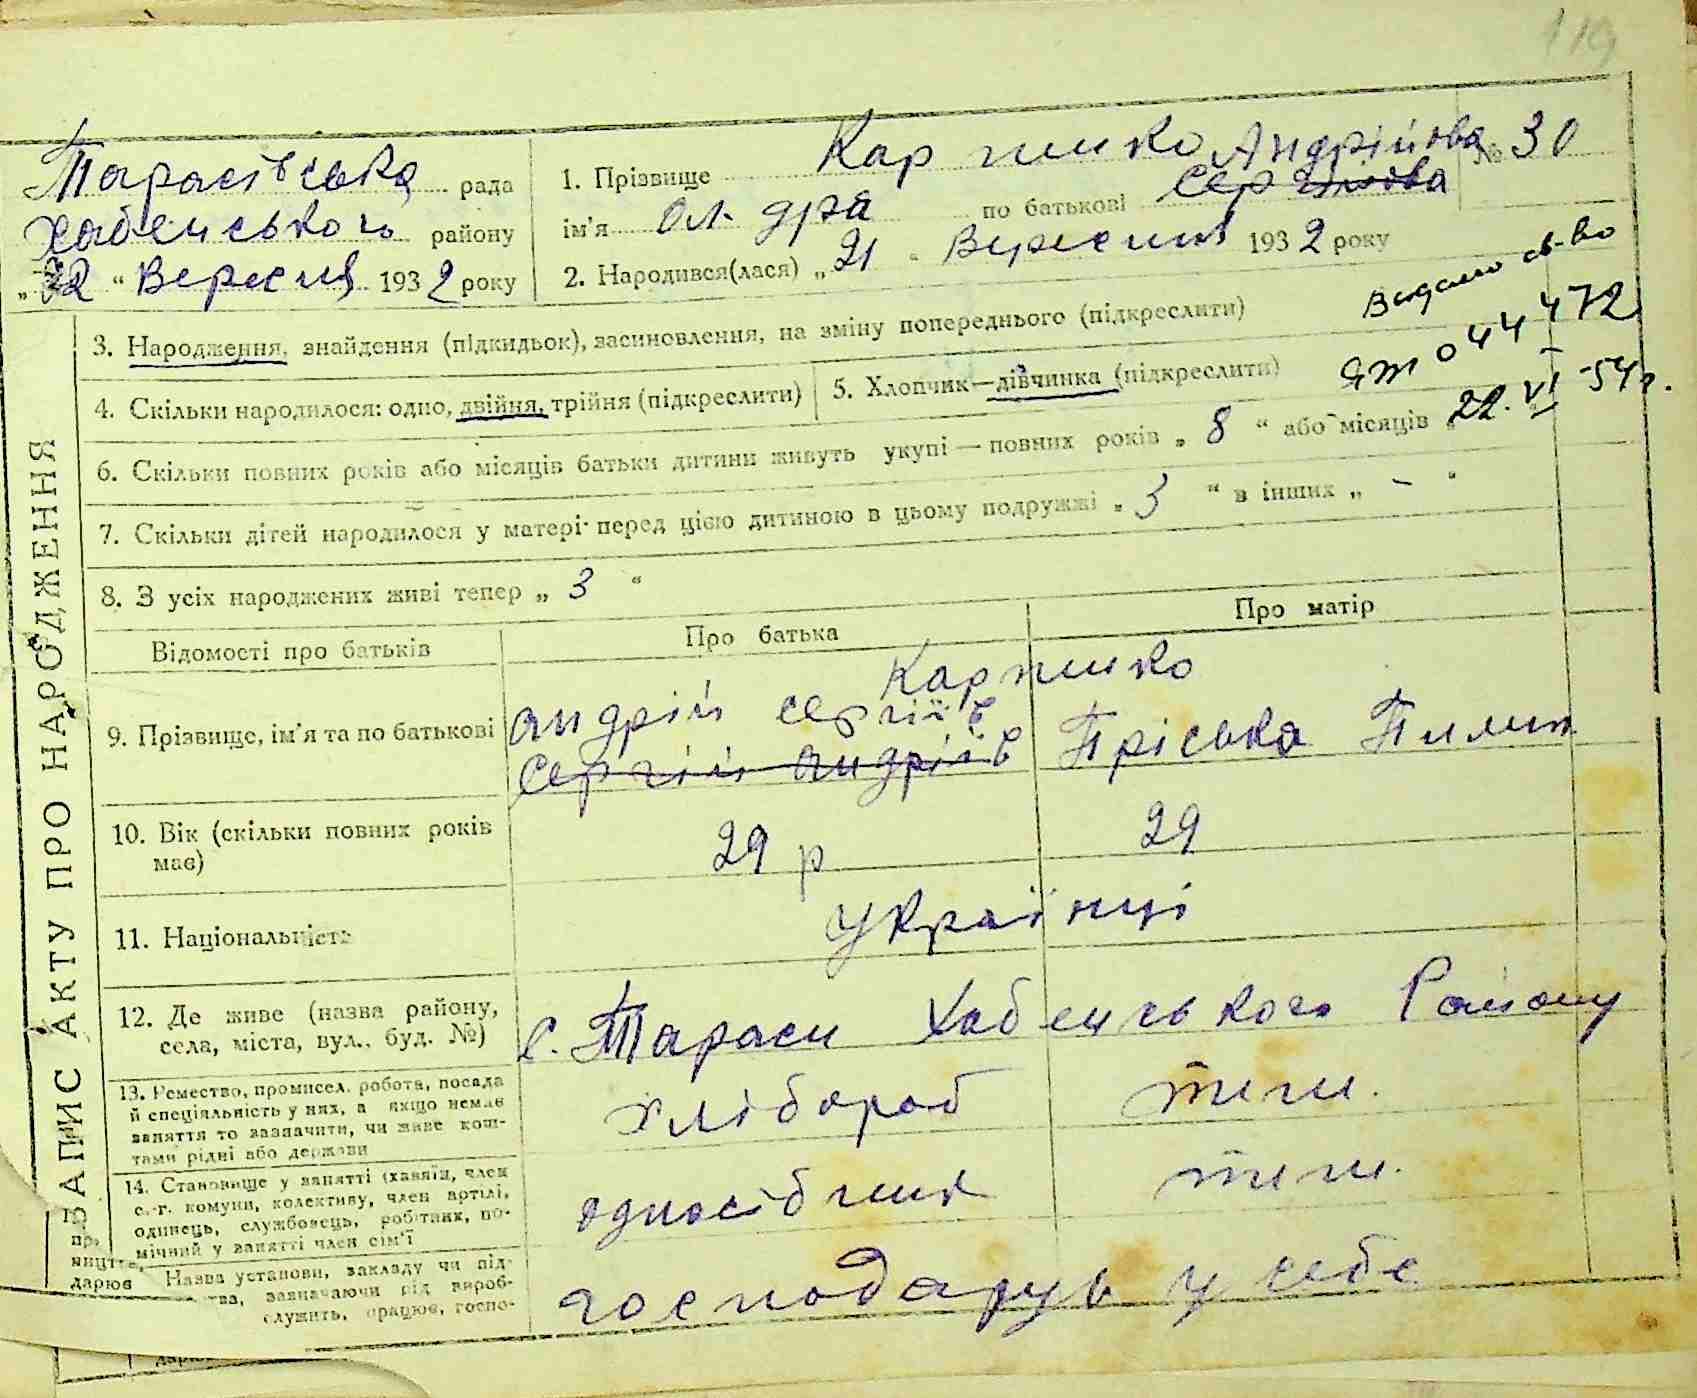 119
Тарасівська рада
Хабенського району
„22“ Вересня 1932 року
1. Прізвище Карпенко № 30
Андрійова
ім'я Ол-дра по батькові Сергіїова
2. Народився(лася) „21“ Вересня 1932 року
Видано св-во
ЯТ 044472
22. VI-54 г.
ЗАПИС АКТУ ПРО НАРОДЖЕННЯ
3. Народження, знайдення (підкидьок), засиновлення, на зміну попереднього (підкреслити)
4. Скільки народилося: одно, двійня, трійня (підкреслити)
5. Хлопчик—дівчинка (підкреслити)
6. Скільки повних років або місяців батьки дитини живуть укупі — повних років „8“ або місяців „
7. Скільки дітей народилося у матері перед цією дитиною в цьому подружжі „3“ в інших „-“
8. З усіх народжених живі тепер „3“
Відомості про батьків Про батька Про матір
Карпенко
9. Прізвище, ім'я та по батькові Андрій Сергіїв Пріська Пилип
Сергій Андріїв
10. Вік (скільки повних років 29 р 29
має)
11. Національність Українці
12. Де живе (назва району,
села, міста, вул., буд. №) с. Тараси Хабенського Району
13. Ремество, промисел, робота, посада
й спеціяльність у них, а якщо немає
заняття то зазначити, чи живе кош-
тами рідні або держави
хлібороб теж.
14. Становище у занятті (хазяїн, член
с.-г. комуни, колективу, член артілі,
одинець, службовець, робітник, по-
мічний у занятті член сім'ї
односібник теж.
Назва установи, закладу чи під-
тва, зазначаючи рід вироб-
служить, працює, госпо-
господарує у себе